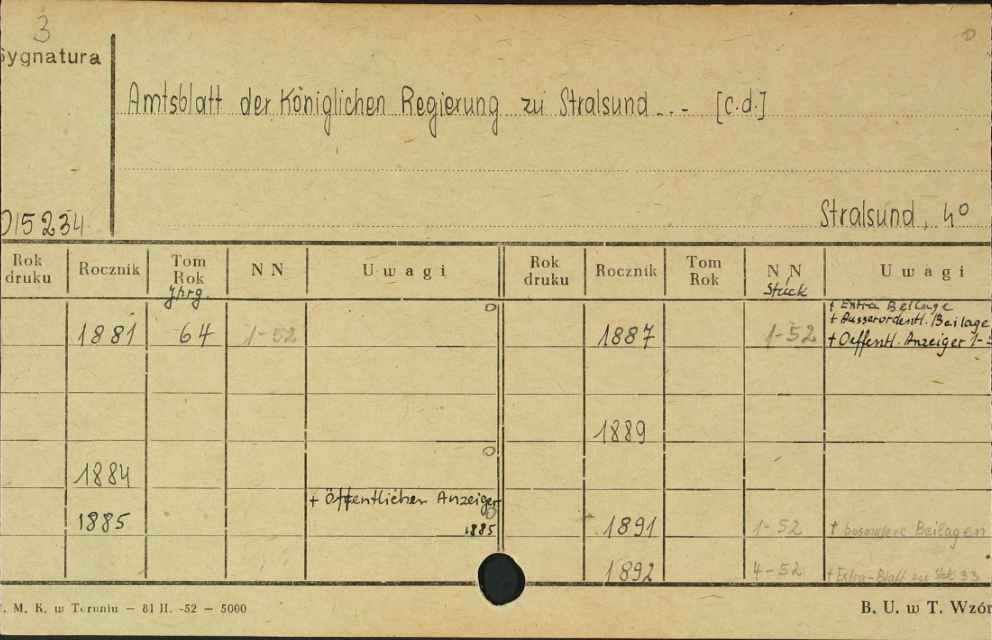 3
Sygnatura
Amtsblatt der Königlichen Regierung zu Stralsund... - [c.d.]
015234
Stralsund, 4°
Rok druku | Rocznik | Tom Rok Jhrg. | N N | Uwagi | Rok druku | Rocznik | Tom Rok | N N Stück | Uwagi
+ Extra Beilage
+ Ausserordentl. Beilage
1881 | 64 | 1-52 | 1887 | 1-52 | + Oeffentl. Anzeiger 1-
1889
1884
+ Öffentlicher Anzeiger
1885 | 1885 | 1891 | 1-52 | + besondere Beilagen
1892 | 4-52 | + Extra-Blatt zu Stck 33
. M. K. w Toruniu — 81 II. -52 — 5000
B. U. w T. Wzór